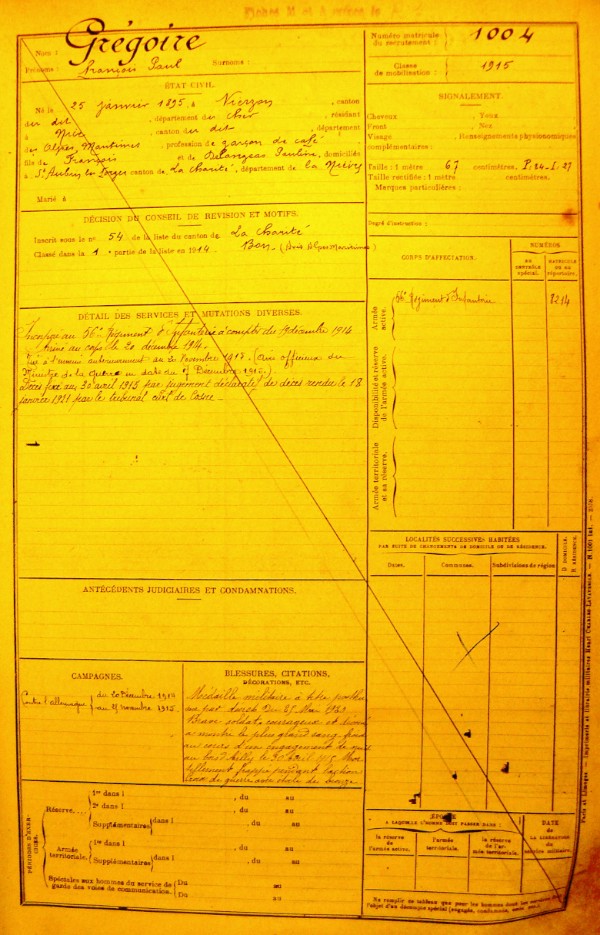 Nom : Grégoire
Prénoms : François Paul Surnoms :
Numéro matricule du recrutement : 1004
Classe de mobilisation : 1915
ÉTAT CIVIL.
Né le 25 janvier 1895, à Vierzon, canton
du dit, département du Cher, résidant
à Nice, canton du dit, département
des Alpes Maritimes, profession de garçon de café
fils de François et de Pauline, domiciliés
à St Aubin les Forges canton de La Charité, département de la Nièvre
Marié à
SIGNALEMENT.
Cheveux Yeux
Front , Nez
Visage , Renseignements physionomiques
complémentaires :
Taille : 1 mètre 67 centimètres.
Taille rectifiée : 1 mètre centimètres.
Marques particulières :
Degré d'instruction :
DÉCISION DU CONSEIL DE REVISION ET MOTIFS.
Inscrit sous le no 54 de la liste du canton de La Charité
Classé dans la 1 e partie de la liste en 1914 Bon (Avis Alpes Maritimes)
DÉTAIL DES SERVICES ET MUTATIONS DIVERSES.
Incorporé au 56e Régiment d'Infanterie à compter du décembre 1914
Arrivé au corps le 20 décembre 1914.
Tué à l'ennemi antérieurement au Novembre 1915. (Avis officieux du
Ministre de la Guerre en date du 7 Décembre 1915.)
Décès fixé au 30 avril 1915 par jugement déclaratif de décès rendu le 18
janvier 1921 par le tribunal civil de Cosne
CORPS D'AFFECTATION.
NUMÉROS
AU CONTRÔLE spécial.
MATRICULE OU AU répertoire.
Armée active.
56e Régiment d'Infanterie
8214
Disponibilité et réserve de l'armée active.
Armée territoriale et sa réserve.
LOCALITÉS SUCCESSIVES HABITÉES
PAR SUITE DE CHANGEMENTS DE DOMICILE OU DE RÉSIDENCE.
Dates. Communes. Subdivisions de région
D. DOMICILE.
R. RÉSIDENCE.
ANTÉCÉDENTS JUDICIAIRES ET CONDAMNATIONS.
CAMPAGNES.
Contre l'Allemagne du 20 Décembre 1914
au novembre 1915
BLESSURES, CITATIONS,
DÉCORATIONS, ETC.
Médaille militaire à titre posthume
Brave soldat courageux et
a montré le plus grand sang froid
au cours d'un engagement de nuit
au bois d'Ailly le 30 avril 1915
frappé pendant l'action
Croix de guerre avec étoile de bronze
PÉRIODES D'EXERCICES.
Réserve....
1re dans l , du au
2e dans l , du au
Supplémentaires dans l , du au
Armée territoriale.
1re dans l , du au
Supplémentaires dans l , du au
Spéciales aux hommes du service de garde des voies de communication.
Du au
Du au
ÉPOQUE
A LAQUELLE L'HOMME DOIT PASSER DANS :
la réserve de l'armée active.
l'armée territoriale.
la réserve de l'armée territoriale.
DATE
de LA LIBÉRATION du service militaire.
Paris et Limoges — Imprimerie et librairie militaires Henri CHARLES-LAVAUZELLE.